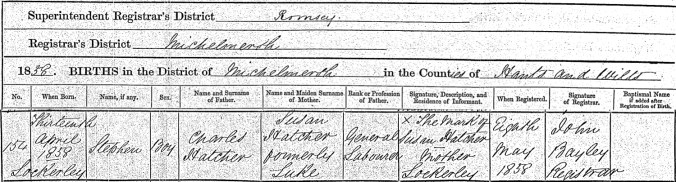 Superintendent Registrar's District Romsey
Registrar's District Michelmersh
1858. BIRTHS in the District of Michelmersh in the Counties of Hants and Wilts
No. When Born. Name, if any. Sex. Name and Surname of Father. Name and Maiden Surname of Mother. Rank or Profession of Father. Signature, Description, and Residence of Informant. When Registered. Signature of Registrar. Baptismal Name if added after Registration of Birth.
154 Thirteenth April 1858 Lockerley Stephen Boy Charles Hatcher Susan Hatcher formerly Luke General Labourer X The Mark of Susan Hatcher Mother Lockerley Eighth May 1858 John Bayley Registrar